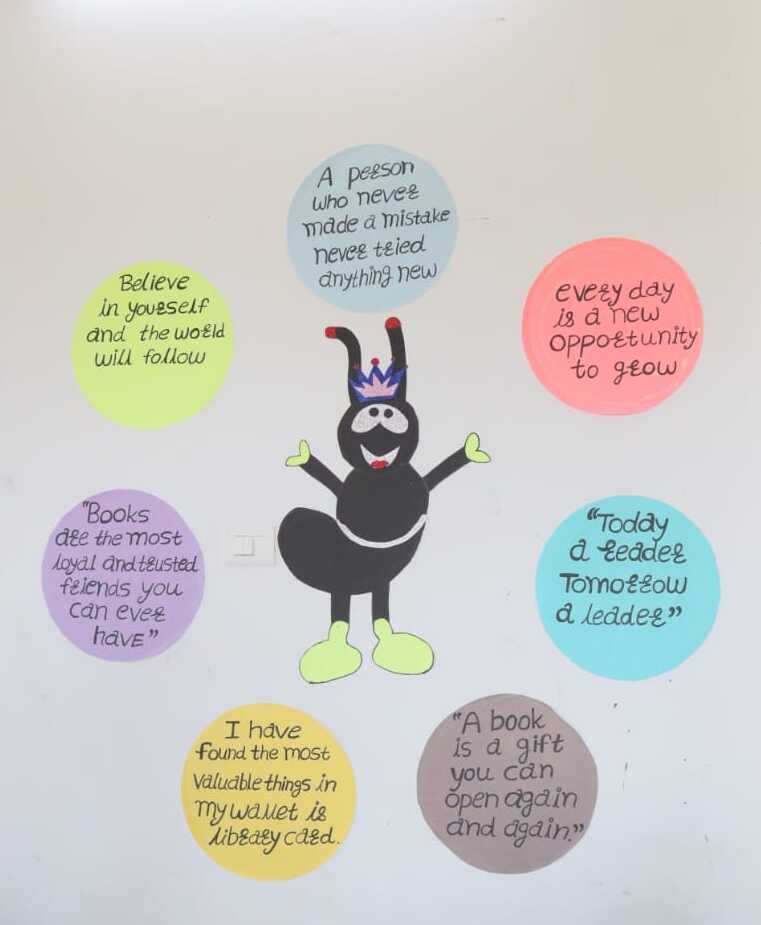 A person
who never
made a mistake
never tried
anything new
Believe
in yourself
and the world
will follow
every day
is a new
opportunity
to grow
"Books
are the most
loyal and trusted
friends you
can ever
have"
"Today
a reader
Tomorrow
a leader"
I have
found the most
valuable things in
my wallet is
library card.
"A book
is a gift
you can
open again
and again."